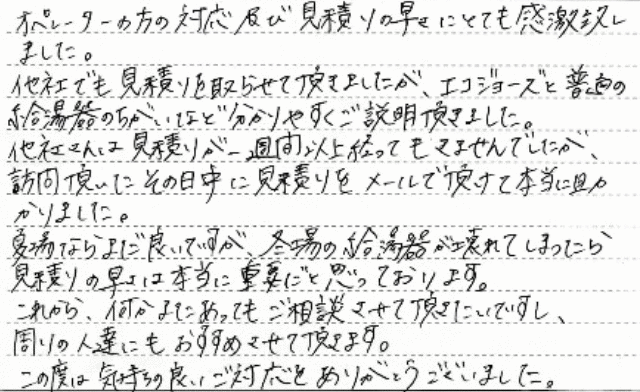 オペレーターの方の対応及び見積りの早さにとても感激致し
ました。
他社でも見積りを取らせて頂きましたが、エコジョーズと普通の
給湯器のちがいなど分かりやすくご説明頂きました。
他社さんは見積りが一週間以上経ってもきませんでしたが、
訪問頂いたその日中に見積りをメールで頂けて本当に助
かりました。
夏場ならまだ良いですが、冬場の給湯器が壊れてしまったら
見積りの早さは本当に重要だと思っております。
これから、何かまたあってもご相談させて頂きたいですし、
周りの人達にもおすすめさせて頂きます。
この度は気持ちの良いご対応をありがとうございました。